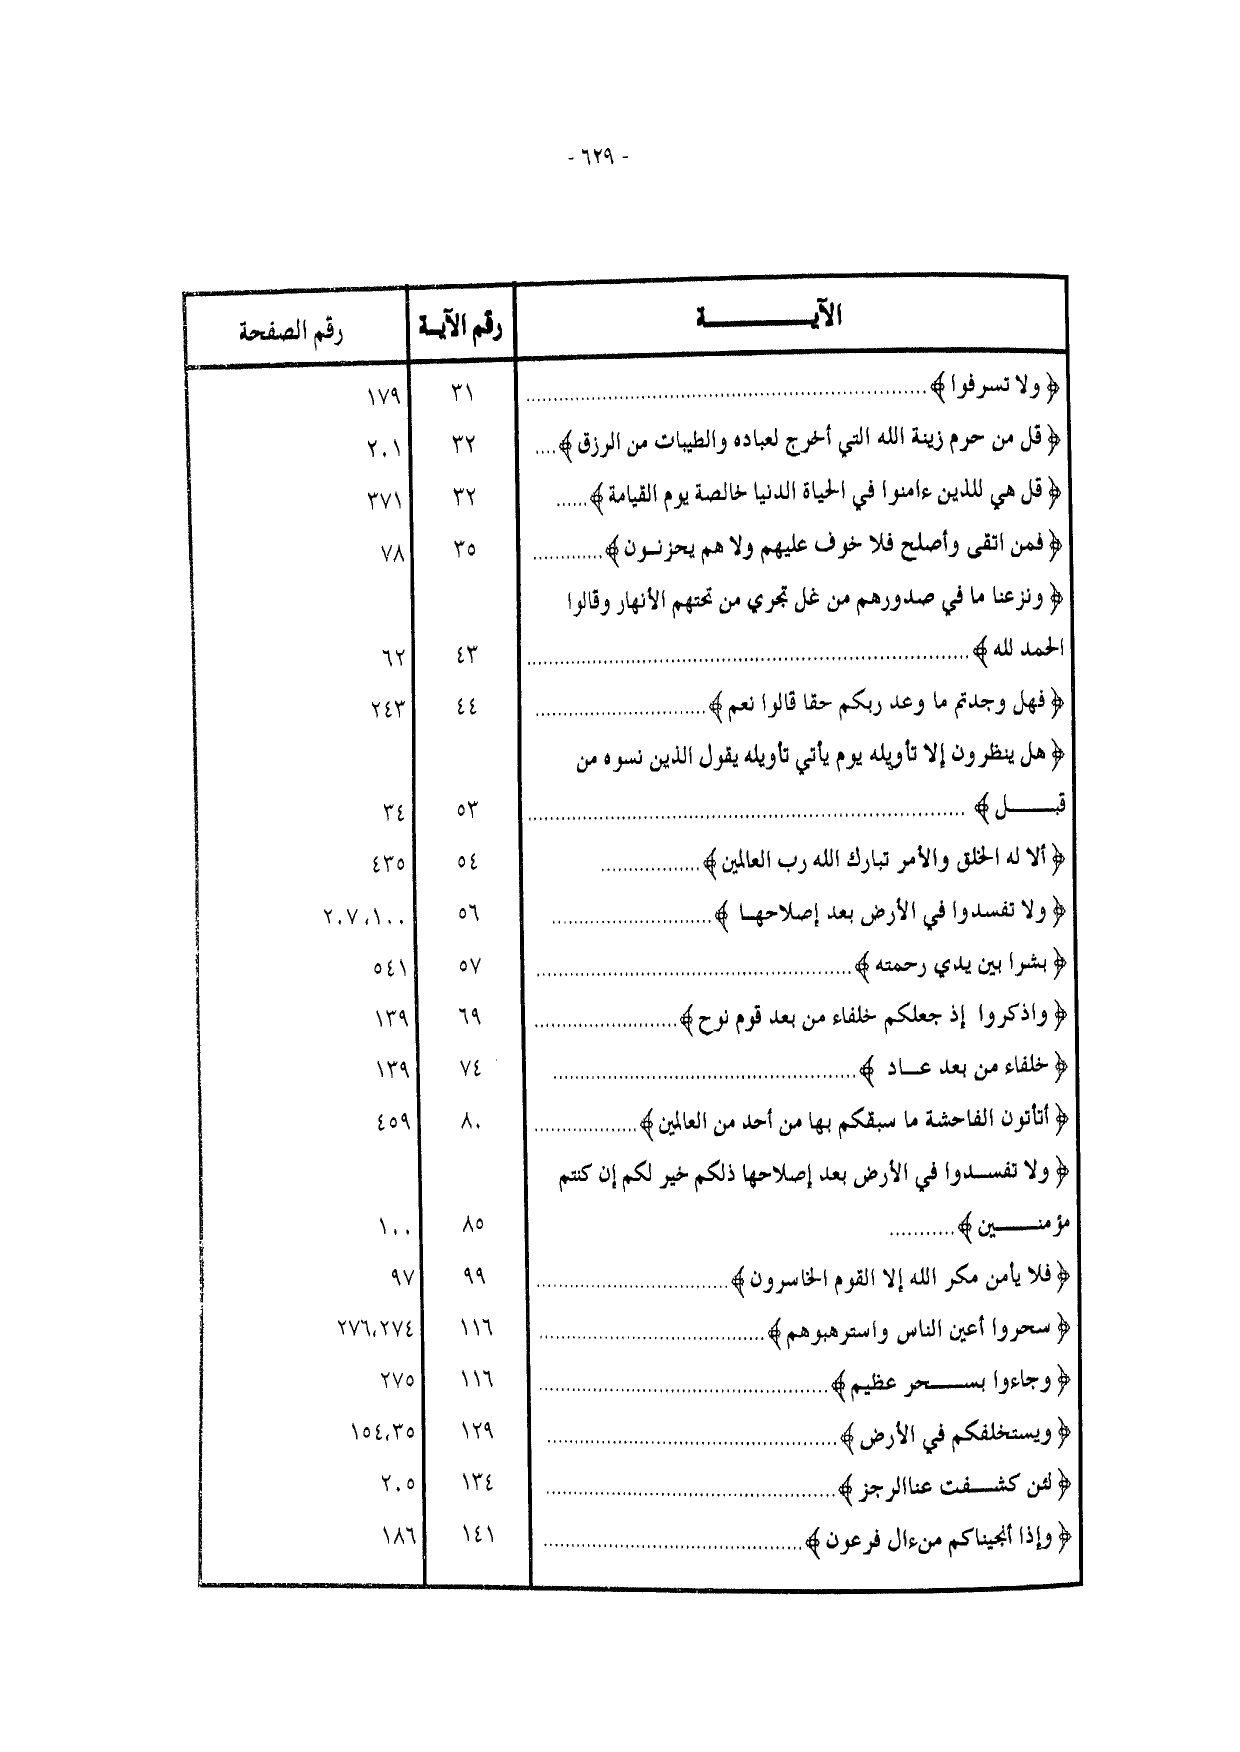 - ٦٢٩ -
الآيـــــــة رقم الآيـة رقم الصفحة
﴿ ولا تسرفوا ﴾ ........ ٣١ ١٧٩
﴿ قل من حرم زينة الله التي أخرج لعباده والطيبات من الرزق ﴾ .... ٣٢ ٢٠١
﴿ قل هي للذين ءامنوا في الحياة الدنيا خالصة يوم القيامة ﴾ ...... ٣٢ ٣٧١
﴿ فمن اتقى وأصلح فلا خوف عليهم ولا هم يحزنـون ﴾ ........ ٣٥ ٧٨
﴿ ونزعنا ما في صدورهم من غل تجري من تحتهم الأنهار وقالوا
الحمد لله ﴾ ........ ٤٣ ٦٢
﴿ فهل وجدتم ما وعد ربكم حقا قالوا نعم ﴾ ........ ٤٤ ٢٤٣
﴿ هل ينظرون إلا تأويله يوم يأتي تأويله يقول الذين نسوه من
قبــــل ﴾ ........ ٥٣ ٣٤
﴿ ألا له الخلق والأمر تبارك الله رب العالمين ﴾ ........ ٥٤ ٤٣٥
﴿ ولا تفسدوا في الأرض بعد إصلاحهـا ﴾ ........ ٥٦ ٢٠٧،١٠٠
﴿ بشرا بين يدي رحمته ﴾ ........ ٥٧ ٥٤١
﴿ واذكروا إذ جعلكم خلفاء من بعد قوم نوح ﴾ ........ ٦٩ ١٣٩
﴿ خلفاء من بعد عـــاد ﴾ ........ ٧٤ ١٣٩
﴿ أتأتون الفاحشة ما سبقكم بها من أحد من العالمين ﴾ ........ ٨٠ ٤٥٩
﴿ ولا تفســدوا في الأرض بعد إصلاحها ذلكم خير لكم إن كنتم
مؤمنــــين ﴾ ........ ٨٥ ١٠٠
﴿ فلا يأمن مكر الله إلا القوم الخاسرون ﴾ ........ ٩٩ ٩٧
﴿ سحروا أعين الناس واسترهبوهم ﴾ ........ ١١٦ ٢٧٦،٢٧٤
﴿ وجاءوا بســــحر عظيم ﴾ ........ ١١٦ ٢٧٥
﴿ ويستخلفكم في الأرض ﴾ ........ ١٢٩ ١٥٤،٣٥
﴿ لئن كشـــفت عنا الرجز ﴾ ........ ١٣٤ ٢٠٥
﴿ وإذا أنجيناكم من ءال فرعون ﴾ ........ ١٤١ ١٨٦